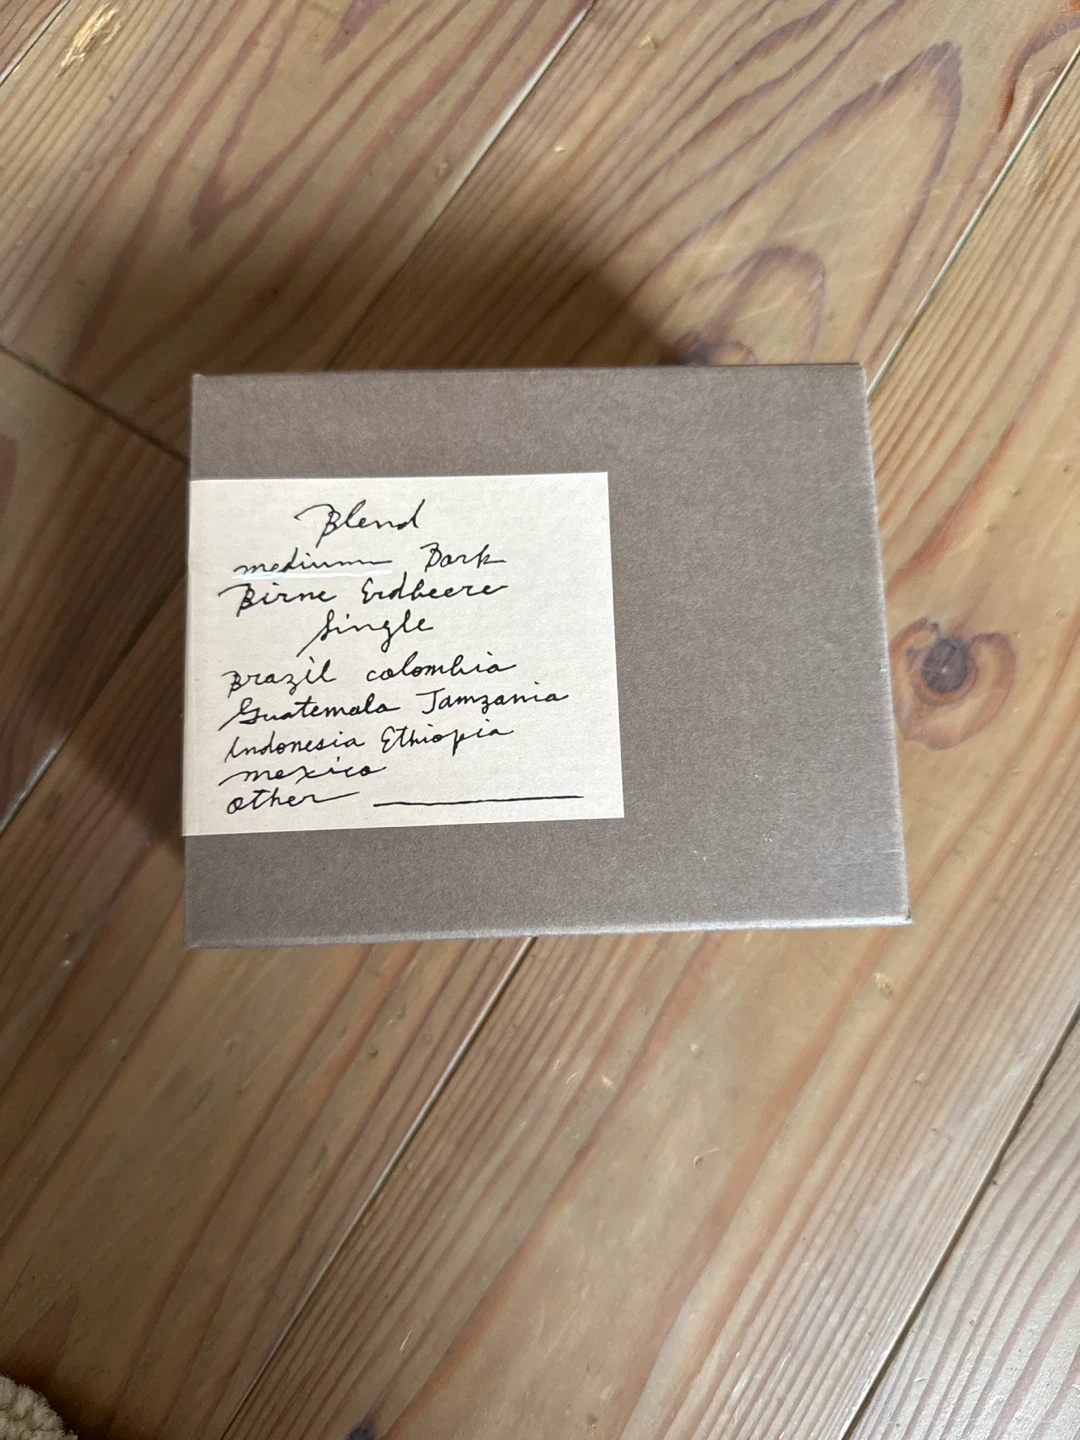 Blend
medium Dark
Birne Erdbeere
Single
Brazil colombia
Guatemala Tamzania
Indonesia Ethiopia
mexico
other